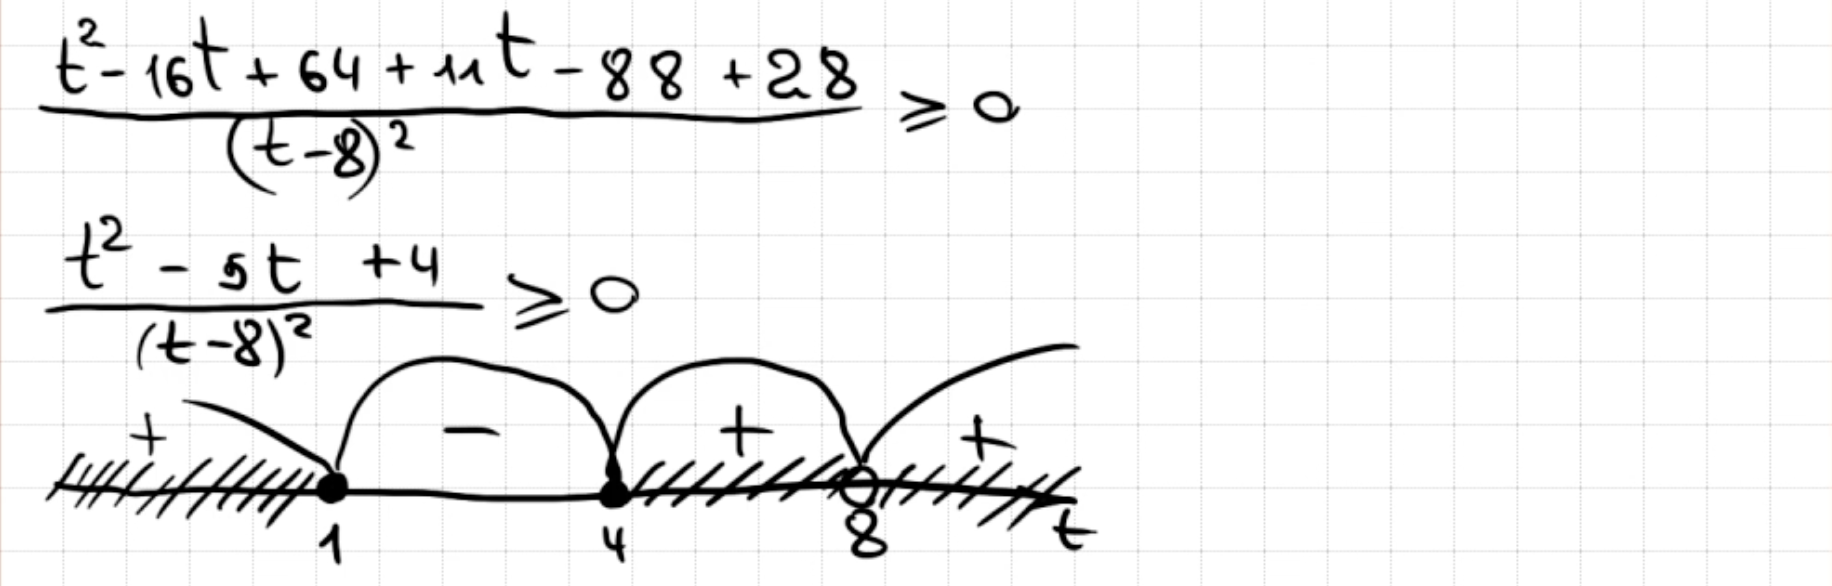 t² - 16t + 64 + 11t - 88 + 28
(t-8)²
⩾ 0
t² - 5t + 4
(t-8)²
⩾ 0
+ - + +
1 4 8 t